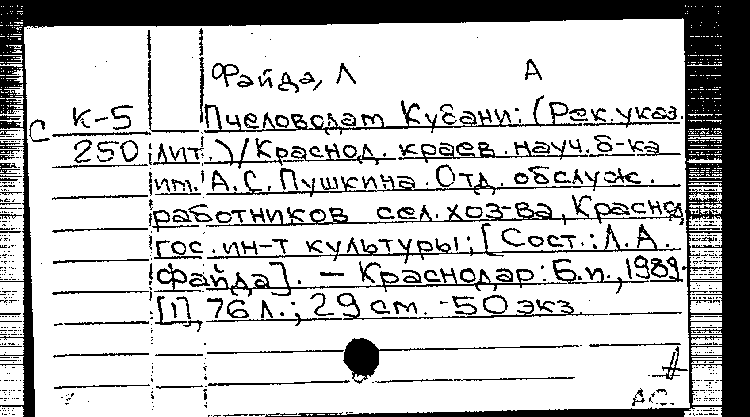 Файда, Л А
С К-5 Пчеловодам Кубани: (Рек. указ.
250 лит.)/Краснод. краев. науч. б-ка
им. А.С. Пушкина. Отд. обслуж.
работников сел. хоз-ва, Краснод.
гос. ин-т культуры; [Сост.: Л.А.
Файда]. — Краснодар: Б.и., 1989.
[1], 76 л.; 29 см. - 50 экз.
АС.